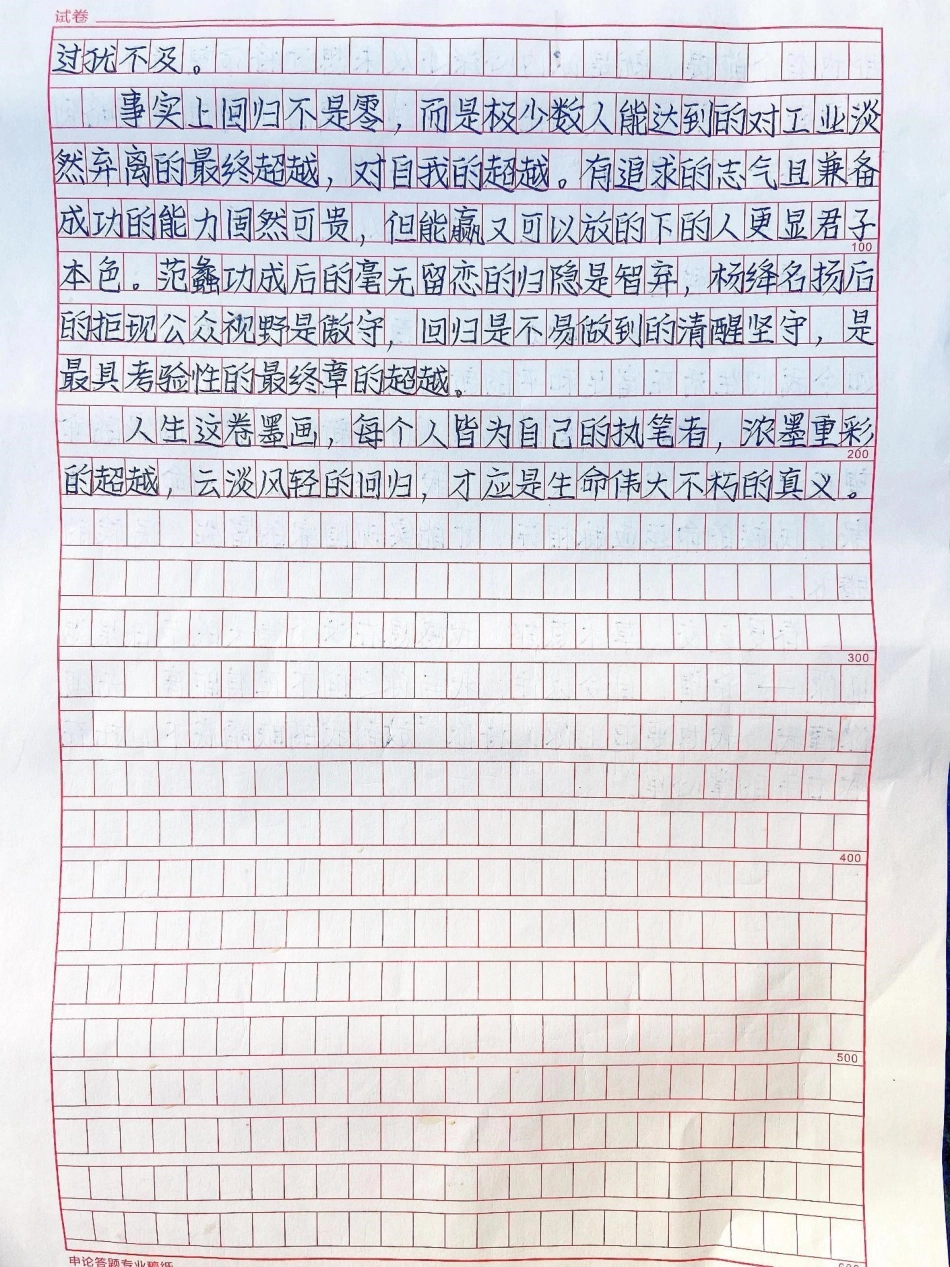 试卷
过犹不及。
事实上回归不是零，而是极少数人能达到的对工业淡
然弃离的最终超越，对自我的超越。有追求的志气且兼备
成功的能力固然可贵，但能赢又可以放的下的人更显君子
100
本色。范蠡功成后的毫无留恋的归隐是智弃，杨绛名扬后
的拒现公众视野是傲守，回归是不易做到的清醒坚守，是
最具考验性的最终章的超越。
人生这卷墨画，每个人皆为自己的执笔者，浓墨重彩
200
的超越，云淡风轻的回归，才应是生命伟大不朽的真义。
300
400
500
申论答题专业稿纸
600